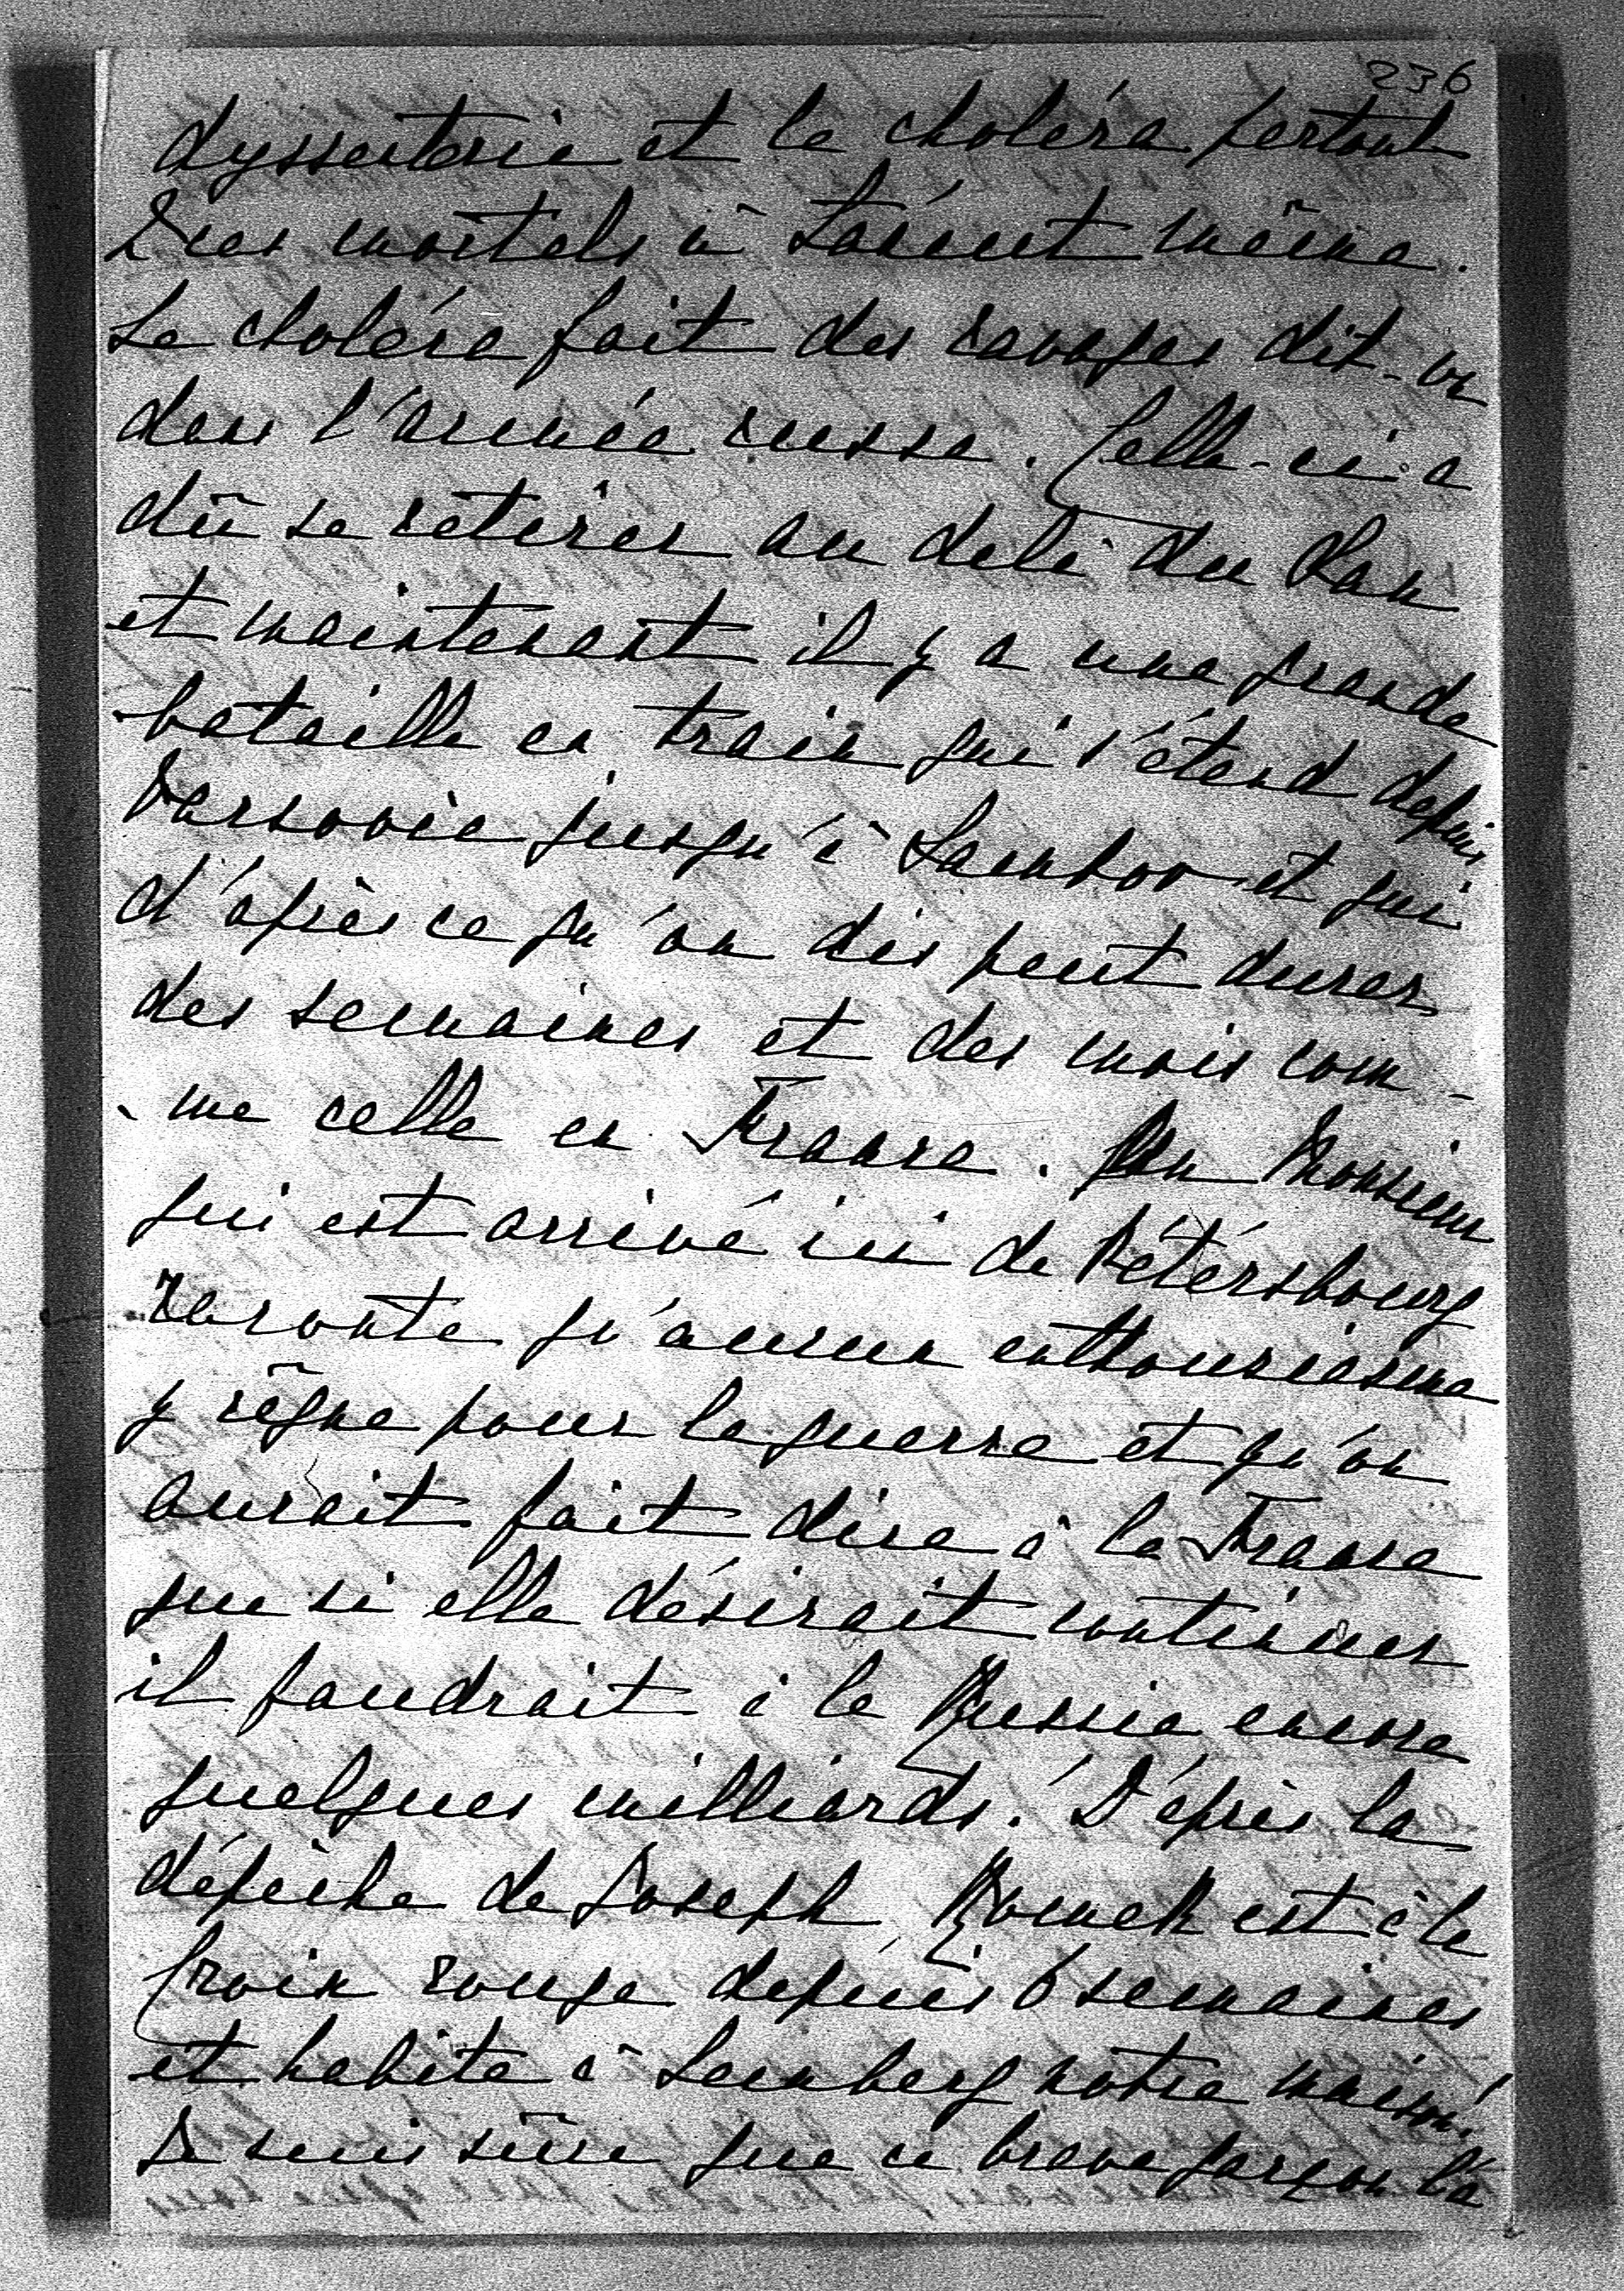 236
dyssenterie et le choléra partout
2 cas mortels à Lancut même.
Le choléra fait des ravages dit-on
dans l'armée russe. Celle-ci a
dû se retirer au delà du San
et maintenant il y a une grande
bataille en train qui s'étend depuis
Varsovie jusqu'à Sambor et qui
d'après ce qu'on dis peut durer
des semaines et des mois com-
-me celle en France. Un Monsieur
qui est arrivé ici de Pétersbourg
raconte qu'aucun enthousiasme
y règne pour la guerre et qu'on
aurait fait dire à la France
que si elle désirait continuer
il faudrait à la Russie encore
quelques milliards! D'après la
dépêche de Joseph est à la
Croix rouge depuis 6 semaines
et habite à Lemberg notre maison!
Je suis sûre que ce brave garçon l'a